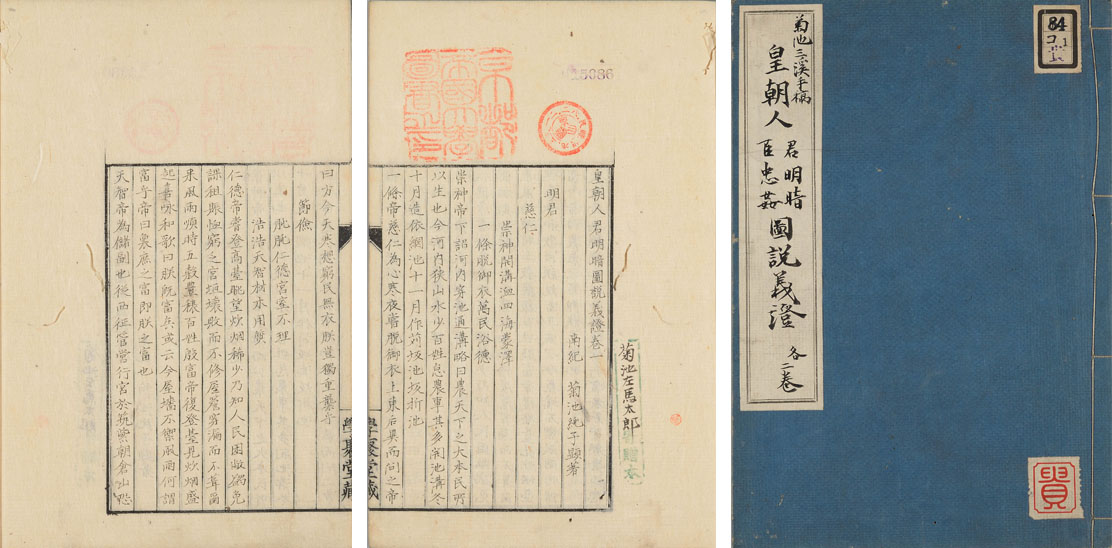 菊池三溪手稿
皇朝人君明暗臣忠姦圖說義證 各二卷
84
貴
京都帝國大學圖書之印
菊池左馬太郎
皇朝人君明暗圖說義證卷一
南紀 菊池純子顯著
明君
慈仁
崇神開溝洫四海蒙澤
一條脫御衣萬民浴德
崇神帝下詔河內穿池通溝略曰農天下之大本民所
以生也今河內狹山水少百姓怠農事其多開池溝冬
十月造依網池十一月作苅坂池坂折池
一條帝慈仁為心寒夜嘗脫御衣上東后異而問之帝
學聚堂藏
曰方今天寒想窮民無衣朕豈獨重裘乎
節儉
朏朏仁德宮室不理
浩浩天智材木用
仁德帝嘗登高臺眺望炊烟稀少乃知人民困敝蠲免
課租賑恤窮乏宮垣壞敗而不修屋蓋穿漏而不葺爾
來風雨順時五穀豐穰百姓殷富帝復登臺見炊烟盛
起喜咏和歌曰朕既富矣或云今屋墻不禦風雨何謂
富乎帝曰衆庶之富即朕之富也
天智帝為儲副也從西征營行宮於筑紫朝倉山
學聚堂藏